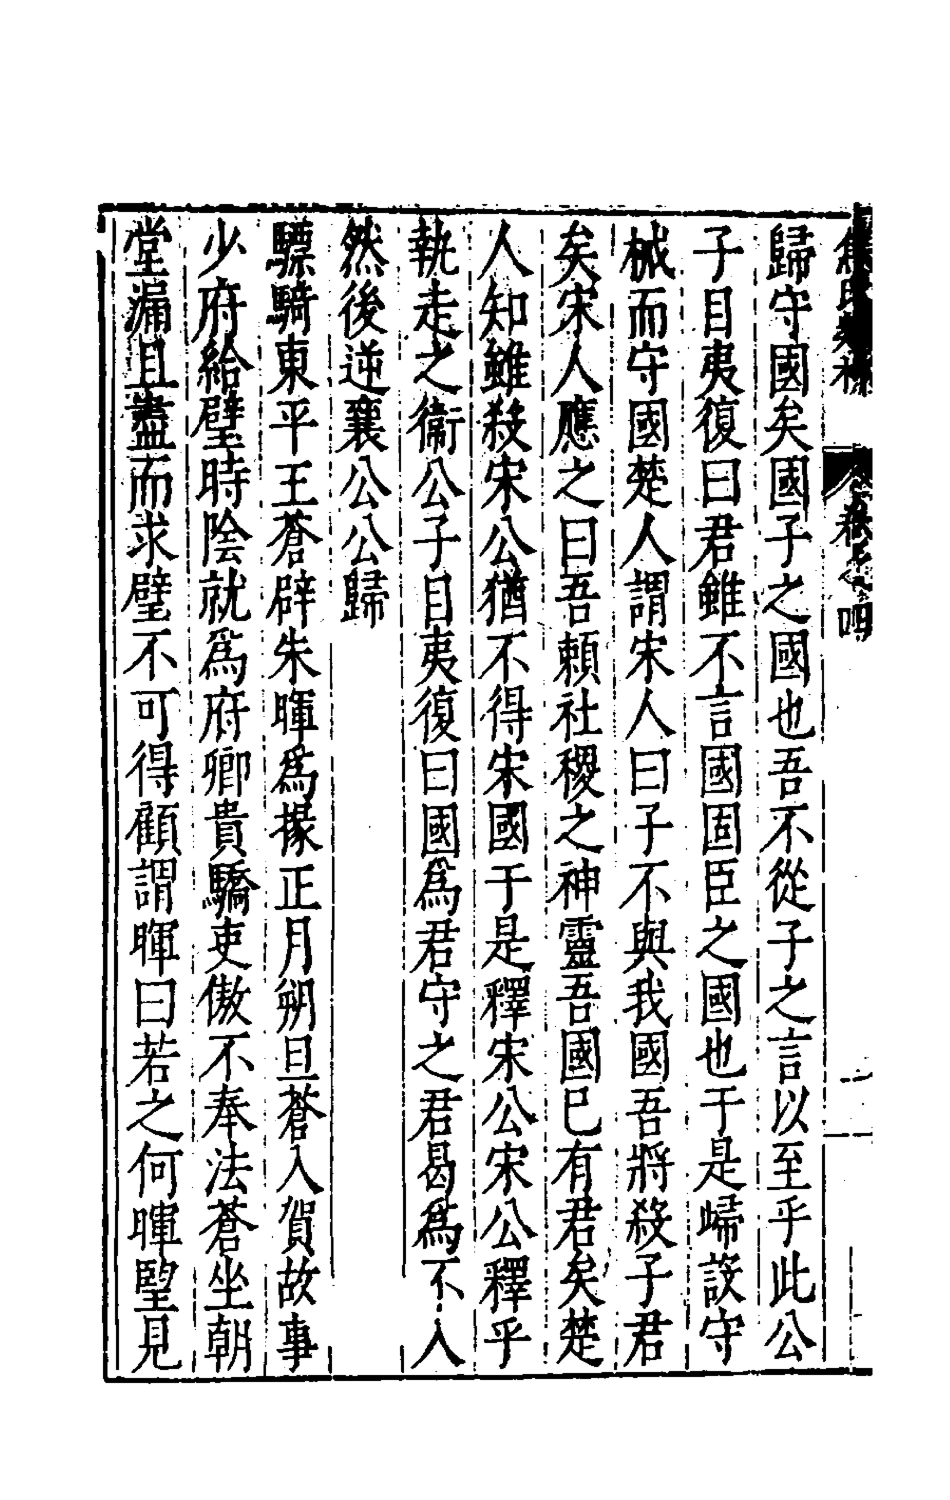 歸守國矣國子之國也吾不從子之言以至乎此公
子目夷復曰君雖不言國固臣之國也于是歸設守
械而守國楚人謂宋人曰子不與我國吾將殺子君
矣宋人應之曰吾賴社稷之神靈吾國已有君矣楚
人知雖殺宋公猶不得宋國于是釋宋公宋公釋乎
執走之衞公子目夷復曰國為君守之君曷為不入
然後逆襄公公歸
驃騎東平王蒼辟朱暉為掾正月朔旦蒼入賀故事
少府給璧時陰就為府卿貴驕吏傲不奉法蒼坐朝
堂漏且盡而求璧不可得顧謂暉曰若之何暉望見